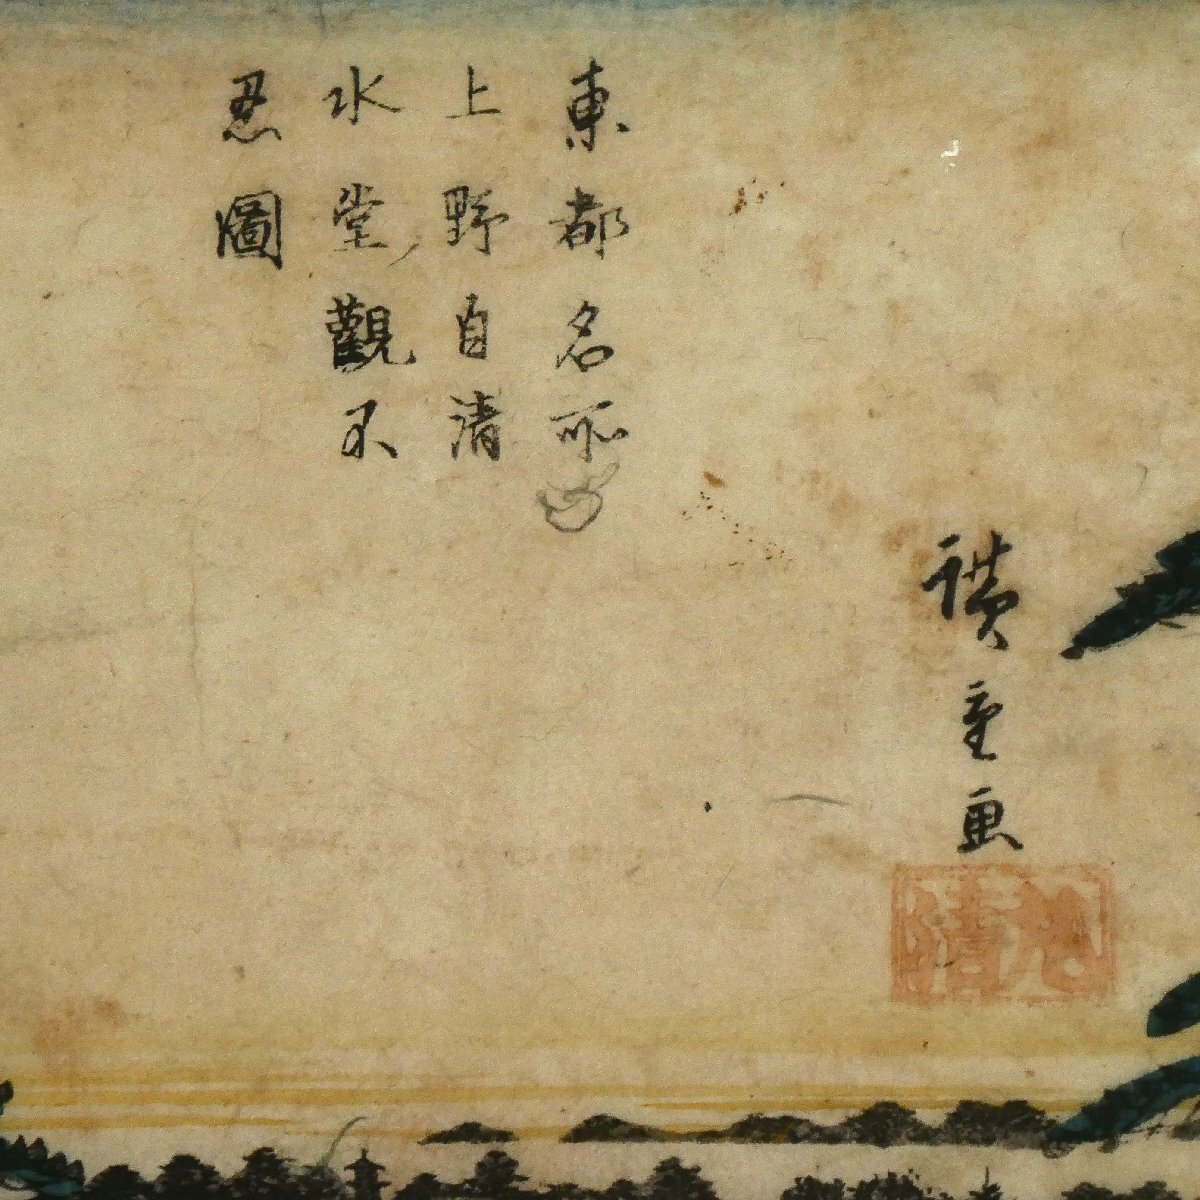 東都名所
上野自清
水堂觀不
忍圖
重画